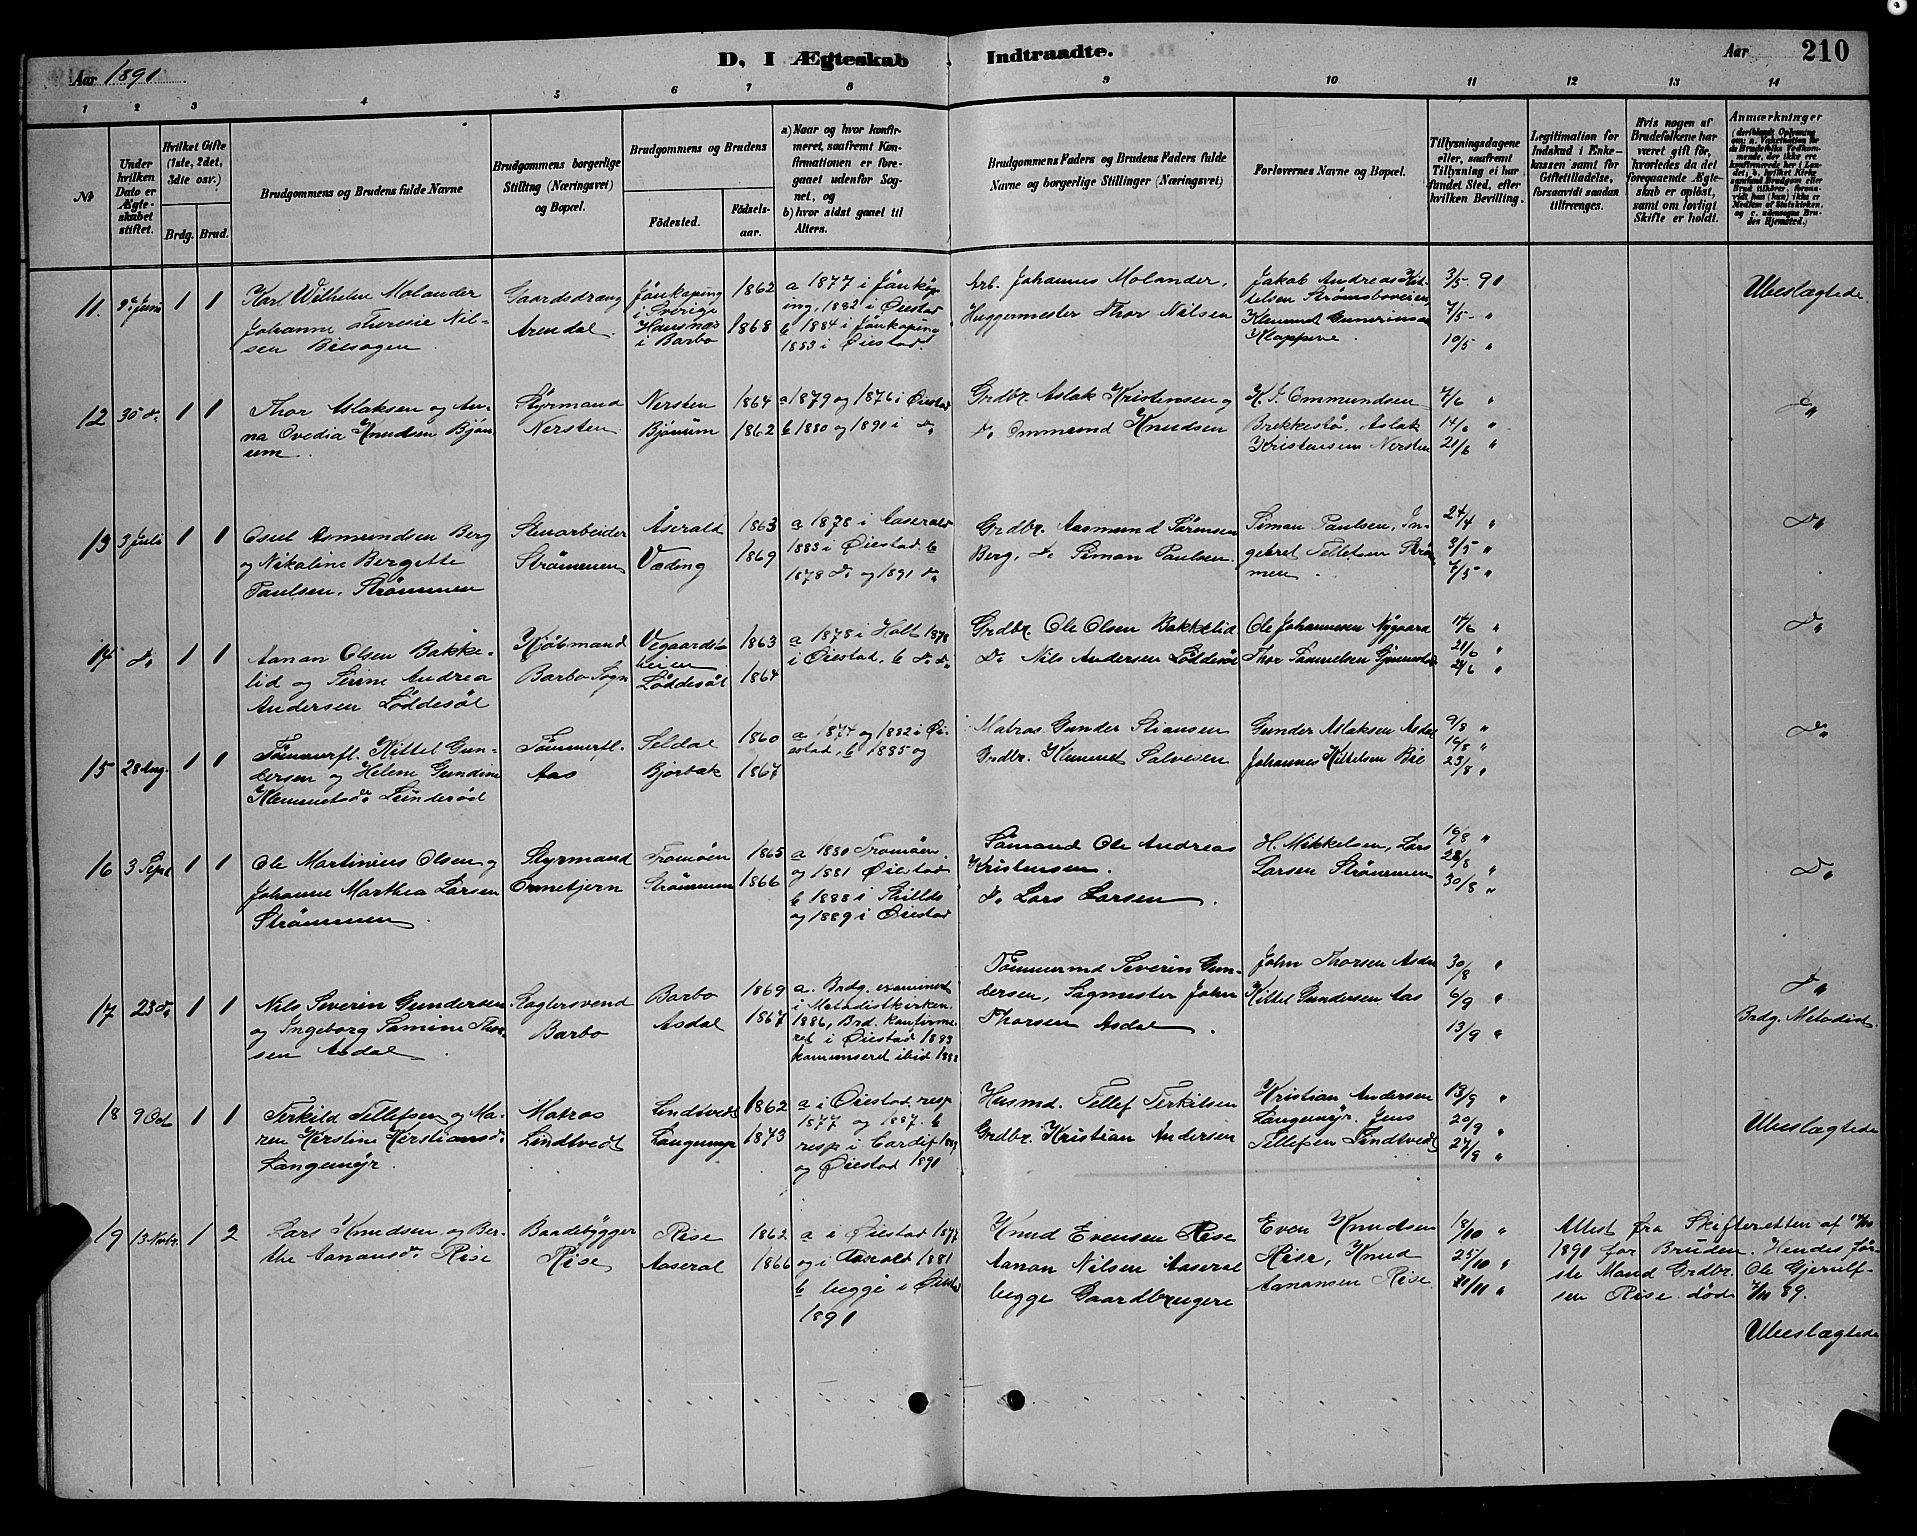 D, I Ægteskab Indtraadte.
Aar 1891
Aar 210
1 2 3 4 5 6 7 8 9 10 11 12 13 14
№
Under hvilken Dato er Ægteskabet stiftet.
Hvilket Gifte (1ste, 2det, 3die osv.)
Brdg. Brud.
Brudgommens og Brudens fulde Navne
Brudgommens borgerlige Stilling (Næringsvei) og Bopæl.
Brudgommens og Brudens
Födested.
Födsels-aar.
a) Naar og hvor konfirmeret, saafremt Konfirmationen er foregaaet udenfor Sognet, og
b) hvor sidst gaaet til Alters.
Brudgommens Faders og Brudens Faders fulde Navne og borgerlige Stillinger (Næringsvei)
Forlovernes Navne og Bopæl.
Tillysningsdagene eller, saafremt Tillysning ei har fundet Sted, efter hvilken Bevilling.
Legitimation for Indskud i Enkekassen samt for Giftetilladelse, forsaavidt saadan tiltrænges.
Hvis nogen af Brudefolkene har været gift för, hvorledes da det foregaaende Ægteskab er oplöst, samt om lovligt Skifte er holdt.
Anmærkninger
11. 9de Juni 1 1
Karl Wilhelm Molander
Johanne Theresie Nil-
sen Bilsogen
Gaardsdræng
Arendal
Jönkøping
i Sverige
i Barbo
1862
1868
a 1877 i Jönköp
ing, 1882 i Øiestad
b 1884 i Jönkøping
1883 i Øiestad.
Arb. Johannes Molander.
Huggermester Thor Nilsen
Jakob Andreas Kit-
telsen Strømsboveien
Klappene.
3/5 - 91
7/5 - "
10/5 "
Ubeslægtede
12 30 do 1 1
Thor Aslaksen og An-
na Ovedia Knudsen Bjor-
um
Styrmand
Nersten
Nersten
Bjorum
1864
1862
a 1879 og 1876 i Øiestad
b 1880 og 1891 i do
Grdbr. Aslak Kristensen og
do Ommund Knudsen
K. J. Ommundsen
Brekkestø, Aslak
Kristensen Nersten
7/6 "
14/6 "
21/6 "
do
13 3 Juli 1 1
Osul Asmundsen Berg
og Nikoline Bergette
Paulsen, Strømmen
Stenarbeider
Strømmen
Aserald
Væding
1863
1869
a 1878 i Aaseral
1883 i Øiestad b
1878 do og 1891 do
Grdbr. Aasmund Sørensen
Berg, do Simon Paulsen
Simon Paulsen, In-
gebret Tellefsen Strøm
men.
24/4 "
3/5 "
7/5 "
do
14 do 1 1
Aanan Olsen Bakke-
lid og Serine Andrea
Andersen Løddesøl
Kjøbmand
Barbo Sogn
Vegaardshei
en
Løddesøl
1863
1864
a 1878 i Holt 1878
i Øiestad, b do do
Grdbr. Ole Olsen Bakkelid
do Nils Andersen Løddesøl
Ole Johannesen Nygaard
Thor Samuelsen
14/6 "
21/6 "
24/6 "
do
15 28 Aug. 1 1
Tømmerfl. Kittel Gun-
dersen og Helene Gundine
Klemmetsdr Linderød
Tømmerfl.
Aas
Seldal
Bjorbæk
1860
1867
a 1874 og 1882 i Øi-
estad, b 1885 og
Matros Gunder Stiansen
Grdbr. Klemmet Salvesen
Gunder Aslaksen Asdal
Johannes Kittelsen Bie
9/8 "
16/8 "
23/8 "
do
16 3 Sept 1 1
Ole Martinius Olsen og
Johanne Marthea Larsen
Strømmen
Styrmand
Ormetjern
Tromøen
Strømmen
1865
1866
a 1880 Tromøen
og 1881 Øiestad
b 1888 i Skilds
og 1889 i Øiestad
Sømand Ole Andreas
Kristensen.
do Lars Larsen
H. Mikkelsen, Lars
Larsen Strømmen
16/8 "
23/8 "
30/8 "
do
17 23 do 1 1
Nils Severin Gundersen
og Ingeborg Tamine Thor-
sen Asdal
Slagtersvend
Barbo
Barbo
Asdal
1869
1867
a. Brdg. examineret
i Metodistkirken
1886, Brd. konfirme-
ret i Øiestad 1883
kommuniseret ibid 1888
Tømmermd Severin Gun-
dersen, Sagmester John
Thorsen Asdal
John Thorsen Asdal
Kittel Gundersen Aas
30/8 "
6/9 "
13/9 "
do
Brdg. Metodist.
18 9 Oct 1 1
Terkild Tellefsen og Ma-
ren Kirstine Kristiansdr
Langemyr.
Matros
Lindtvedt
Lindtvedt
Langemyr
1862
1873
a i Øiestad resp
1877 og 1887. b
resp i Cardif 1889
og Øiestad 1891
Husmd. Tellef Terkilsen
Grdbr. Kristian Andersen
Kristian Andersen
Langemyr. Jens
Tellefsen Lindtvedt
13/9 "
20/9 "
27/9 "
Ubeslægtede
19 13 Novbr 1 2
Lars Knudsen og Ber-
the Aanansdr Rise
Baadebygger
Rise
Rise
Aaseral
1862
1866
a i Øiestad 1877
og i Aaserald 1881
b begge i Øiestad
1891
Knud Evensen Rise
Aanon Nilsen Aaseral
begge Gaardbrugere
Even Knudsen
Rise, Knud
Aanonsen Rise
18/10 "
25/10 "
1/11 "
Attest fra Skifteretten af 14/10
1891 for Bruden. Hendes før-
ste Mand Grdbr. Ole Gjerulf-
sen Rise død 7/11 89.
Ubeslægtede